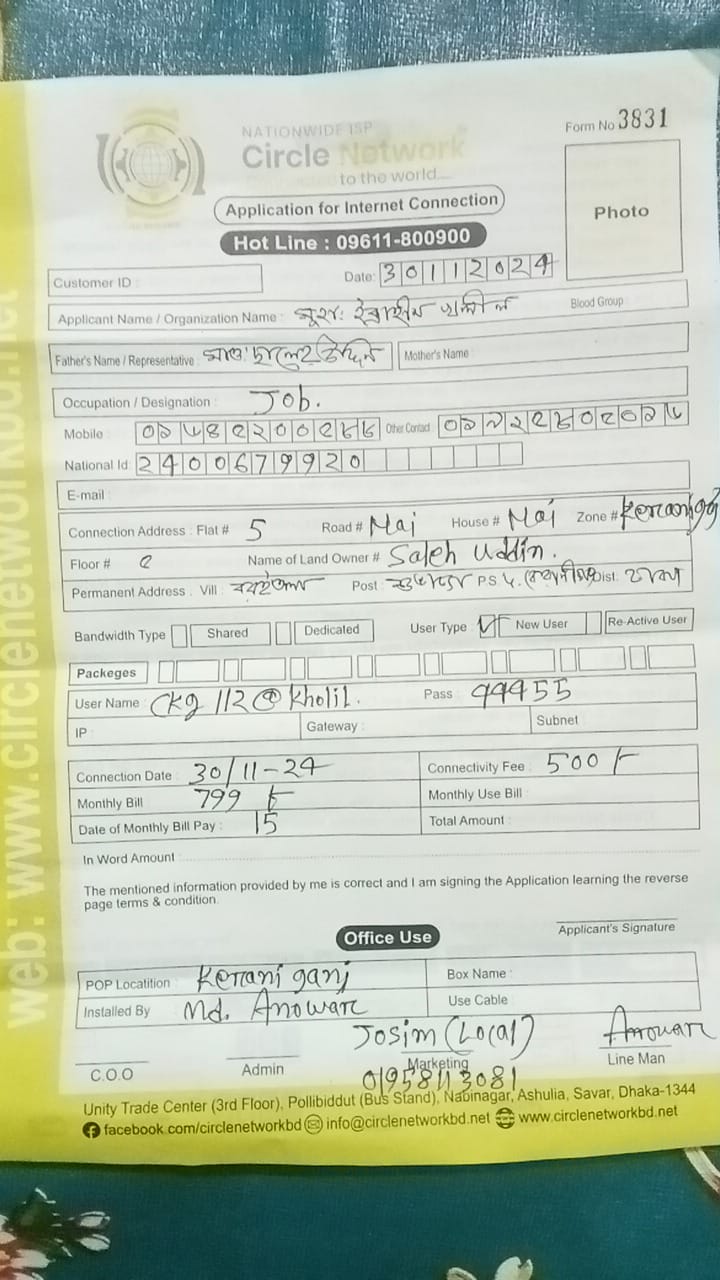 NATIONWIDE ISP
Circle Network
to the world...
Form No 3831
Application for Internet Connection
Hot Line : 09611-800900
Photo
Customer ID :
Date: 30112024
Applicant Name / Organization Name : ইব্রাহীম খলীল Blood Group :
Father's Name / Representative : Mother's Name :
Occupation / Designation : Job.
Mobile : Other Contact :
National Id: 2400679920
E-mail :
Connection Address : Flat # 5 Road # Nai House # Nai Zone #
Floor # Name of Land Owner # Saleh Uddin.
Permanent Address : Vill : Post : PS Dist: ঢাকা
Bandwidth Type Shared Dedicated User Type New User Re-Active User
Packeges
User Name : CKg 112@kholil. Pass : 99955
IP : Gateway : Subnet
Connection Date : 30/11-24 Connectivity Fee : 500/-
Monthly Bill 799 Monthly Use Bill :
Date of Monthly Bill Pay : 15 Total Amount :
In Word Amount
The mentioned information provided by me is correct and I am signing the Application learning the reverse
page terms & condition.
Applicant's Signature
Office Use
POP Locatition : Kerani ganj Box Name :
Installed By : Md. Anowar Use Cable
Josim (Local) Anowar
C.O.O Admin Marketing Line Man
Unity Trade Center (3rd Floor), Pollibiddut (Bus Stand), Nabinagar, Ashulia, Savar, Dhaka-1344
facebook.com/circlenetworkbd info@circlenetworkbd.net www.circlenetworkbd.net
web: www.circlenetworkbd.net